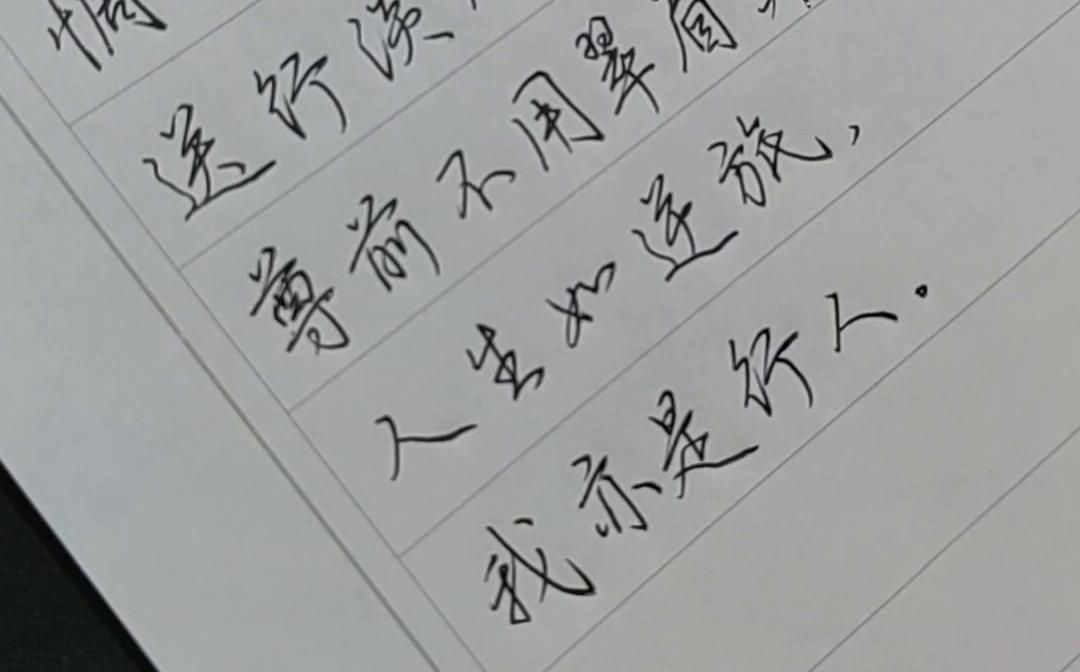 惆
送行淡
尊前不用翠眉
人生如逆旅，
我亦是行人.